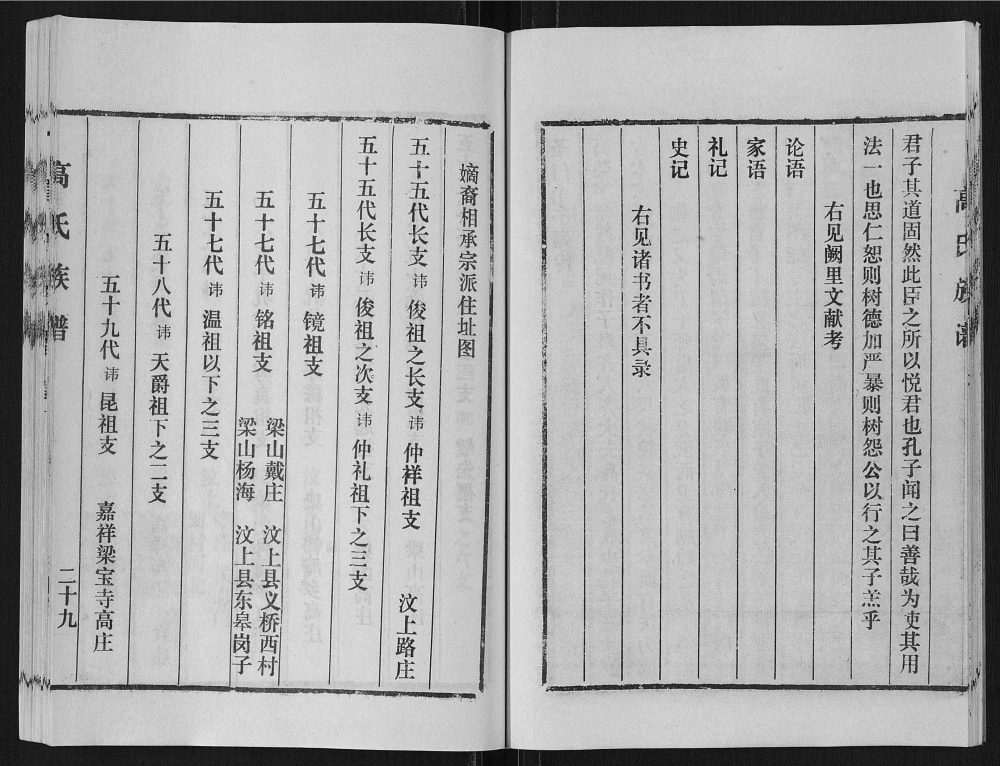 高氏族谱
君子其道固然此臣之所以悦君也孔子闻之曰善哉为吏其用
法一也思仁恕则树德加严暴则树怨公以行之其子羔乎
右见阙里文献考
论语
家语
礼记
史记
右见诸书者不具录
嫡裔相承宗派住址图
五十五代长支讳俊祖之长支讳仲祥祖支 汶上路庄
五十五代长支讳俊祖之次支讳仲礼祖下之三支
五十七代讳镜祖支
五十七代讳铭祖支 梁山戴庄 汶上县义桥西村
梁山杨海 汶上县东皋岗子
五十七代讳温祖以下之三支
五十八代讳天爵祖下之二支
五十九代讳昆祖支 嘉祥梁宝寺高庄
高氏族谱 二十九